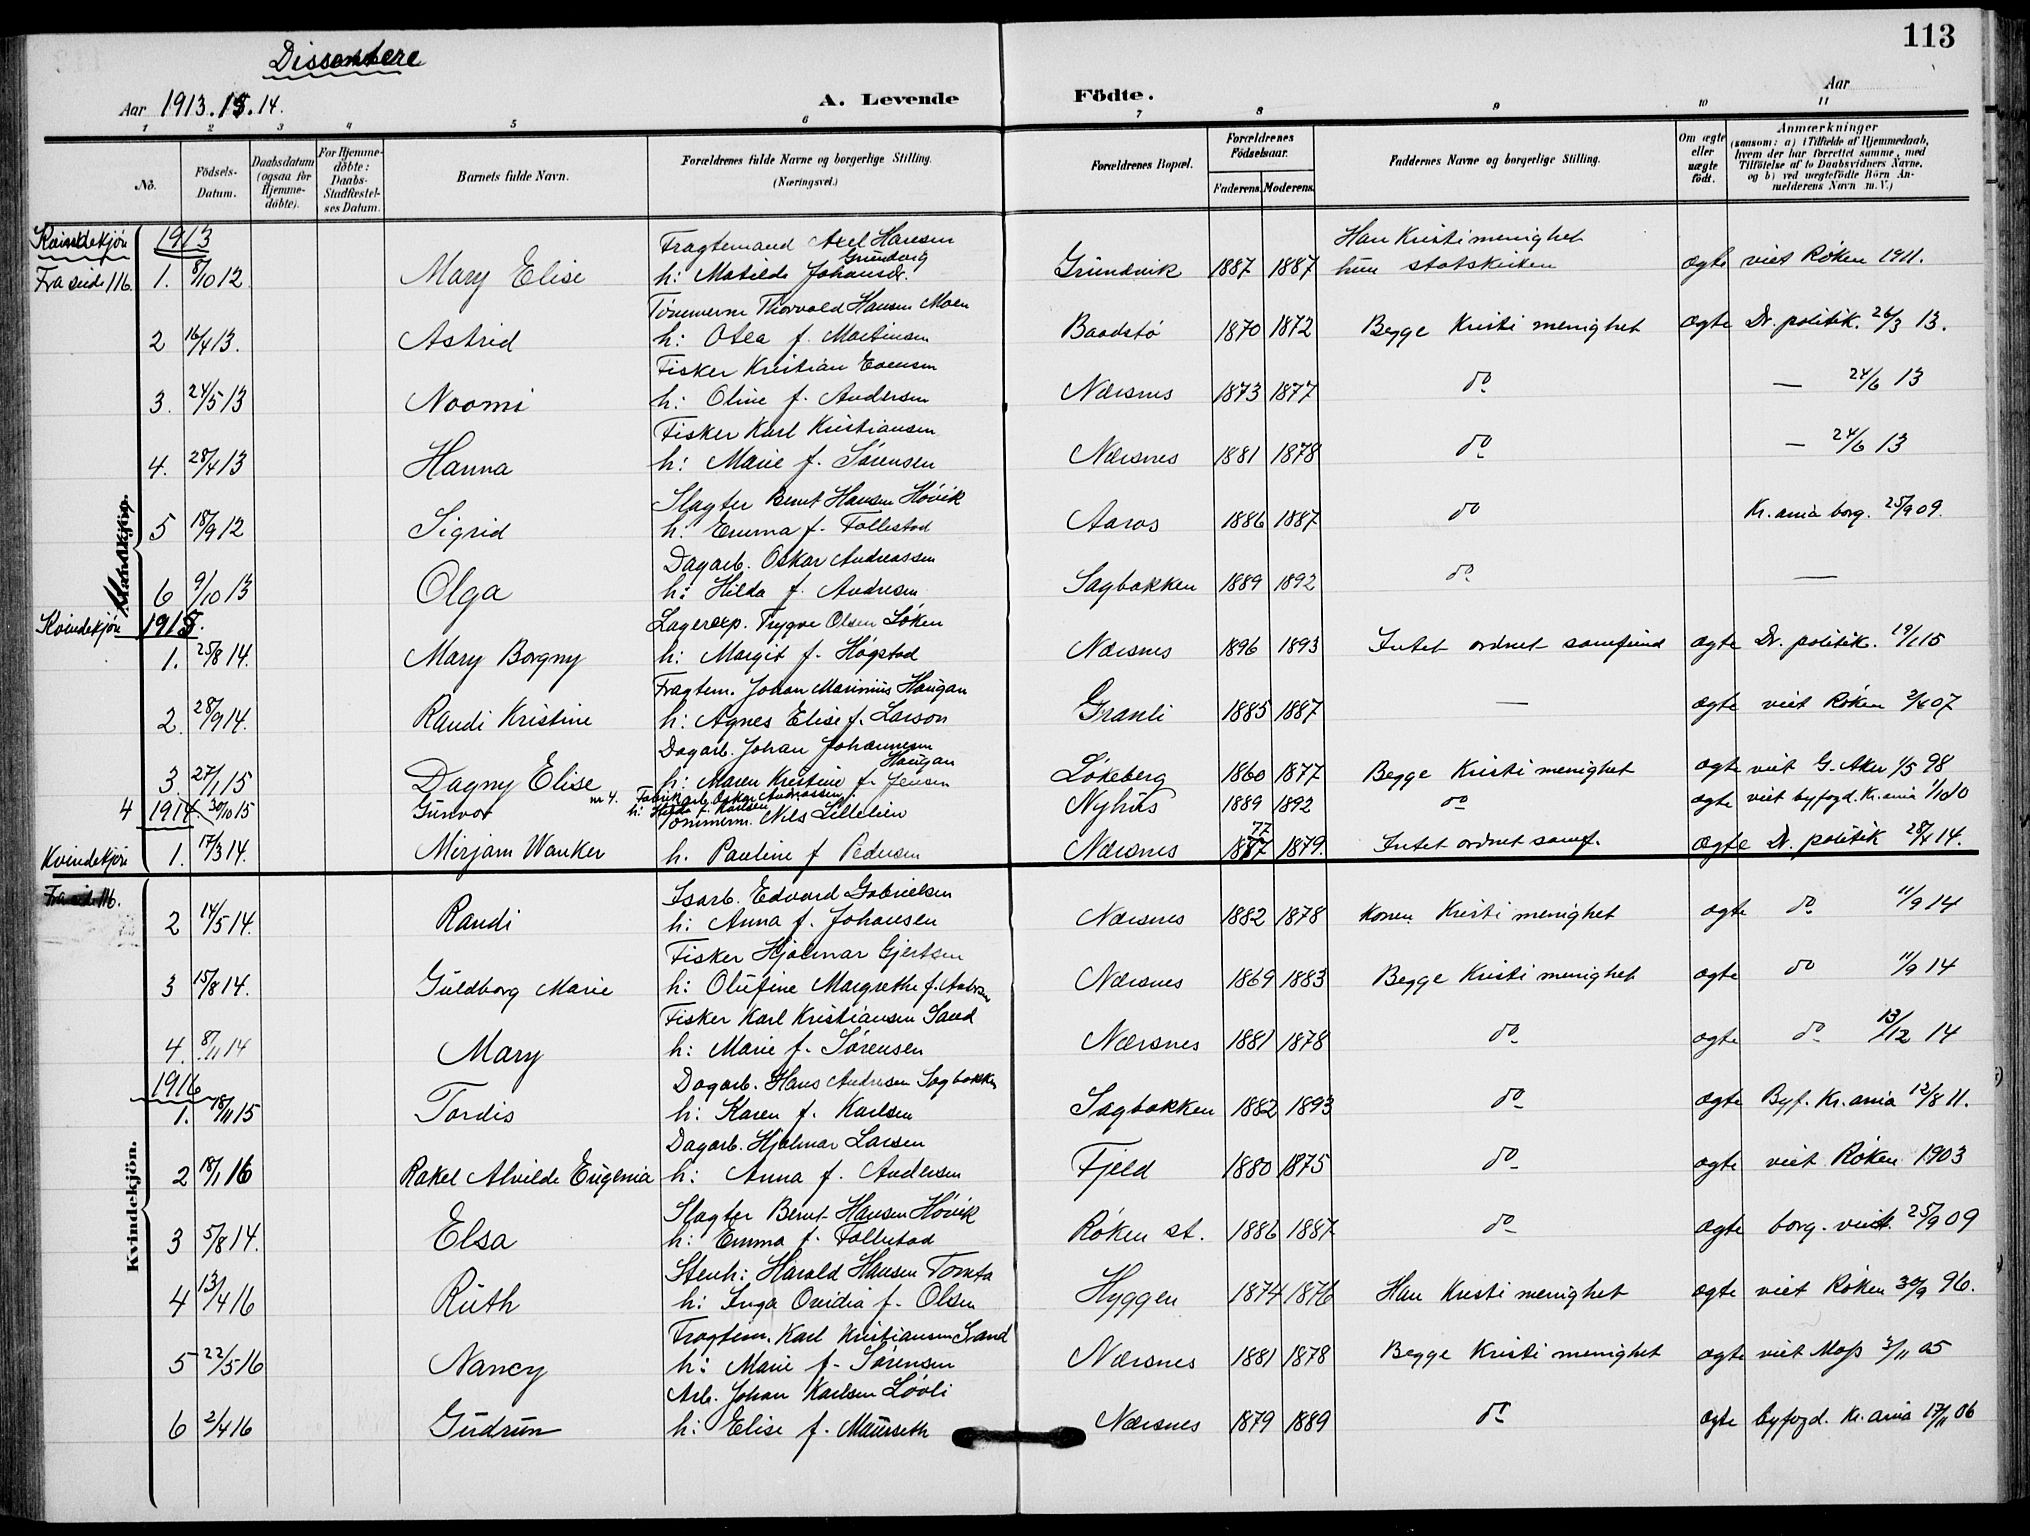 113
Dissentere
Aar 1913. 15. 14.
A. Levende Födte.
Aar
1 2 3 4 5 6 7 8 9 10 11
No.
Födsels-Datum.
Daabsdatum (ogsaa for Hjemme-döbte).
For Hjemme-döbte: Daabs-Stadfæstel-ses Datum.
Barnets fulde Navn.
Forældrenes fulde Navne og borgerlige Stilling.
(Næringsvei.)
Forældrenes Bopæl.
Forældrenes Födselsaar.
Faderens. Moderens.
Faddernes Navne og borgerlige Stilling.
Om ægte eller uægte födt.
Anmærkninger
(saasom: a) i Tilfælde af Hjemmedaab, hvem der har forrettet samme, med Tilföielse af to Daabsvidners Navne, og b) ved uægtefödte Börn An-melderens Navn m. V.)
Kvindekjön 1913
Fragtemand Axel Hansen Grundvig
Han Kristi menighet
Fra side 116. 1. 8/10 12 Mary Elise h: Matilde Johansd. Grundvik 1887 1887 hun statskirken ægte viet Röken 1911.
Tömmerm Thorvald Hansen Moen
2 16/4 13. Astrid h: Otea f. Martinsen Baadstö 1870 1872 Begge Kristi menighet ægte Dr. politik. 26/3 13.
Fisker Kristian Evensen
3. 24/5 13 Noomi h: Oline f. Andersen Nærsnes 1873 1877 do — 24/6 13
Fisker Karl Kristiansen
4. 28/4 13 Hanna h: Marie f. Sörensen Nærsnes 1881 1878 do — 24/6 13
Mandkjön.
Slagter Bernt Hansen Hövik
5 18/9 12 Sigrid h: Emma f. Follestad Aaros 1886 1887 do Kr.ania borg. 25/9 09.
Dagarb. Oskar Andreassen
6 9/10 13 Olga h: Hilda f. Andresen Sagbakken 1889 1892 do —
Kvindekjön 1915.
Lagerexp. Trygve Olsen Löken
1. 25/8 14. Mary Borgny h: Margit f. Högstad Nærsnes 1896 1893 Intet ordnet samfund ægte Dr. politik. 19/1 15
Fragtem. Johan Marinius Haugan
2. 28/9 14. Randi Kristine h: Agnes Elise f. Larson Granli 1885 1887 — ægte viet Röken 07
Dagarb. Johan Johannesen Haugan
3. 27/1 15 Dagny Elise h: Maren Kristine f. Jensen Lökeberg 1860 1877 Begge Kristi menighet ægte viet G. Aker 1/5 98
4 30/10 15 Gunvor nr 4. Fabrikarb. Oskar Andreassen h: Hilda f. Karlsen Nyhus 1889 1892 do ægte viet byfogd. Kr.ania 1/10 10
1914
Tömmerm. Nils Lillelien
Kvindekjön 1. 17/3 14. Mirjam Wanker h. Pauline f Pedersen Nærsnes 1877 1879. Intet ordnet samf. ægte Dr. politik 28/4 14.
Fra side 116.
Isarb. Edvard Gabrielsen
2 14/5 14. Randi h: Anna f. Johansen Nærsnes 1882 1878 Konen Kristi menighet ægte do 11/9 14
Fisker Hjalmar Gjertsen
3 15/8 14. Guldborg Marie h: Olufine Margrethe f. Nærsnes 1869 1883 Begge Kristi menighet ægte do 11/9 14
Fisker Karl Kristiansen Sand
4. 8/11 14 Mary h: Marie f. Sörensen Nærsnes 1881 1878 do ægte do 13/12 14
1916
Dagarb. Hans Andresen Sagbakken
1. 18/11 15 Tordis h: Karen f. Karlsen Sagbakken 1882 1893 do ægte Byf. Kr.ania 12/8 11.
Kvindekjön.
Dagarb. Hjalmar Larsen
2 18/1 16 Rakel Alvilde Eugenia h: Anna f. Andersen Fjeld 1880 1875 do ægte viet Röken 1903
Slagter Bernt Hansen Hövik
3 5/8 14. Elsa h: Emma f. Follestad Röken st. 1886 1887 do ægte borg. viet. 25/9 09
Stenh: Harald Hansen Tomta
4 13/4 16 Ruth h: Inga Ovidia f. Olsen Hyggen 1874 1876 Han Kristi menighet ægte viet Röken 30/9 96.
Fragtem. Karl Kristiansen Sand
5 22/5 16 Nancy h: Marie f. Sörensen Nærsnes 1881 1878 Begge Kristi menighet ægte viet Moss 3/11 05
Arb. Johan Karlsen Lövli
6 2/4 16 Gudrun h: Elise f. Maurseth Nærsnes 1879 1889 do ægte byfogd. Kr.ania 17/11 06